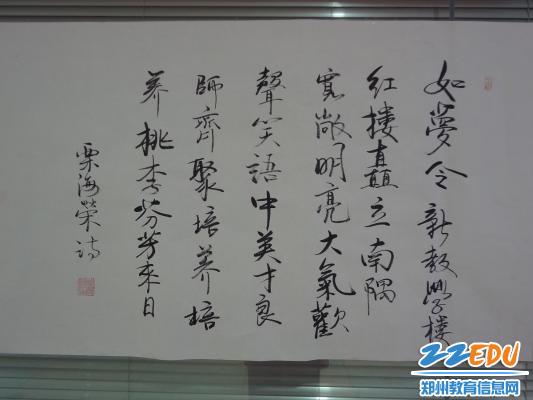 如夢令 新教學楼
红楼矗立南隅
宽敞明亮大氣歡
聲笑語中英才良
師齊聚培养培
养桃李芬芳來日
栗海榮诗
ZZEDU
郑州教育信息网